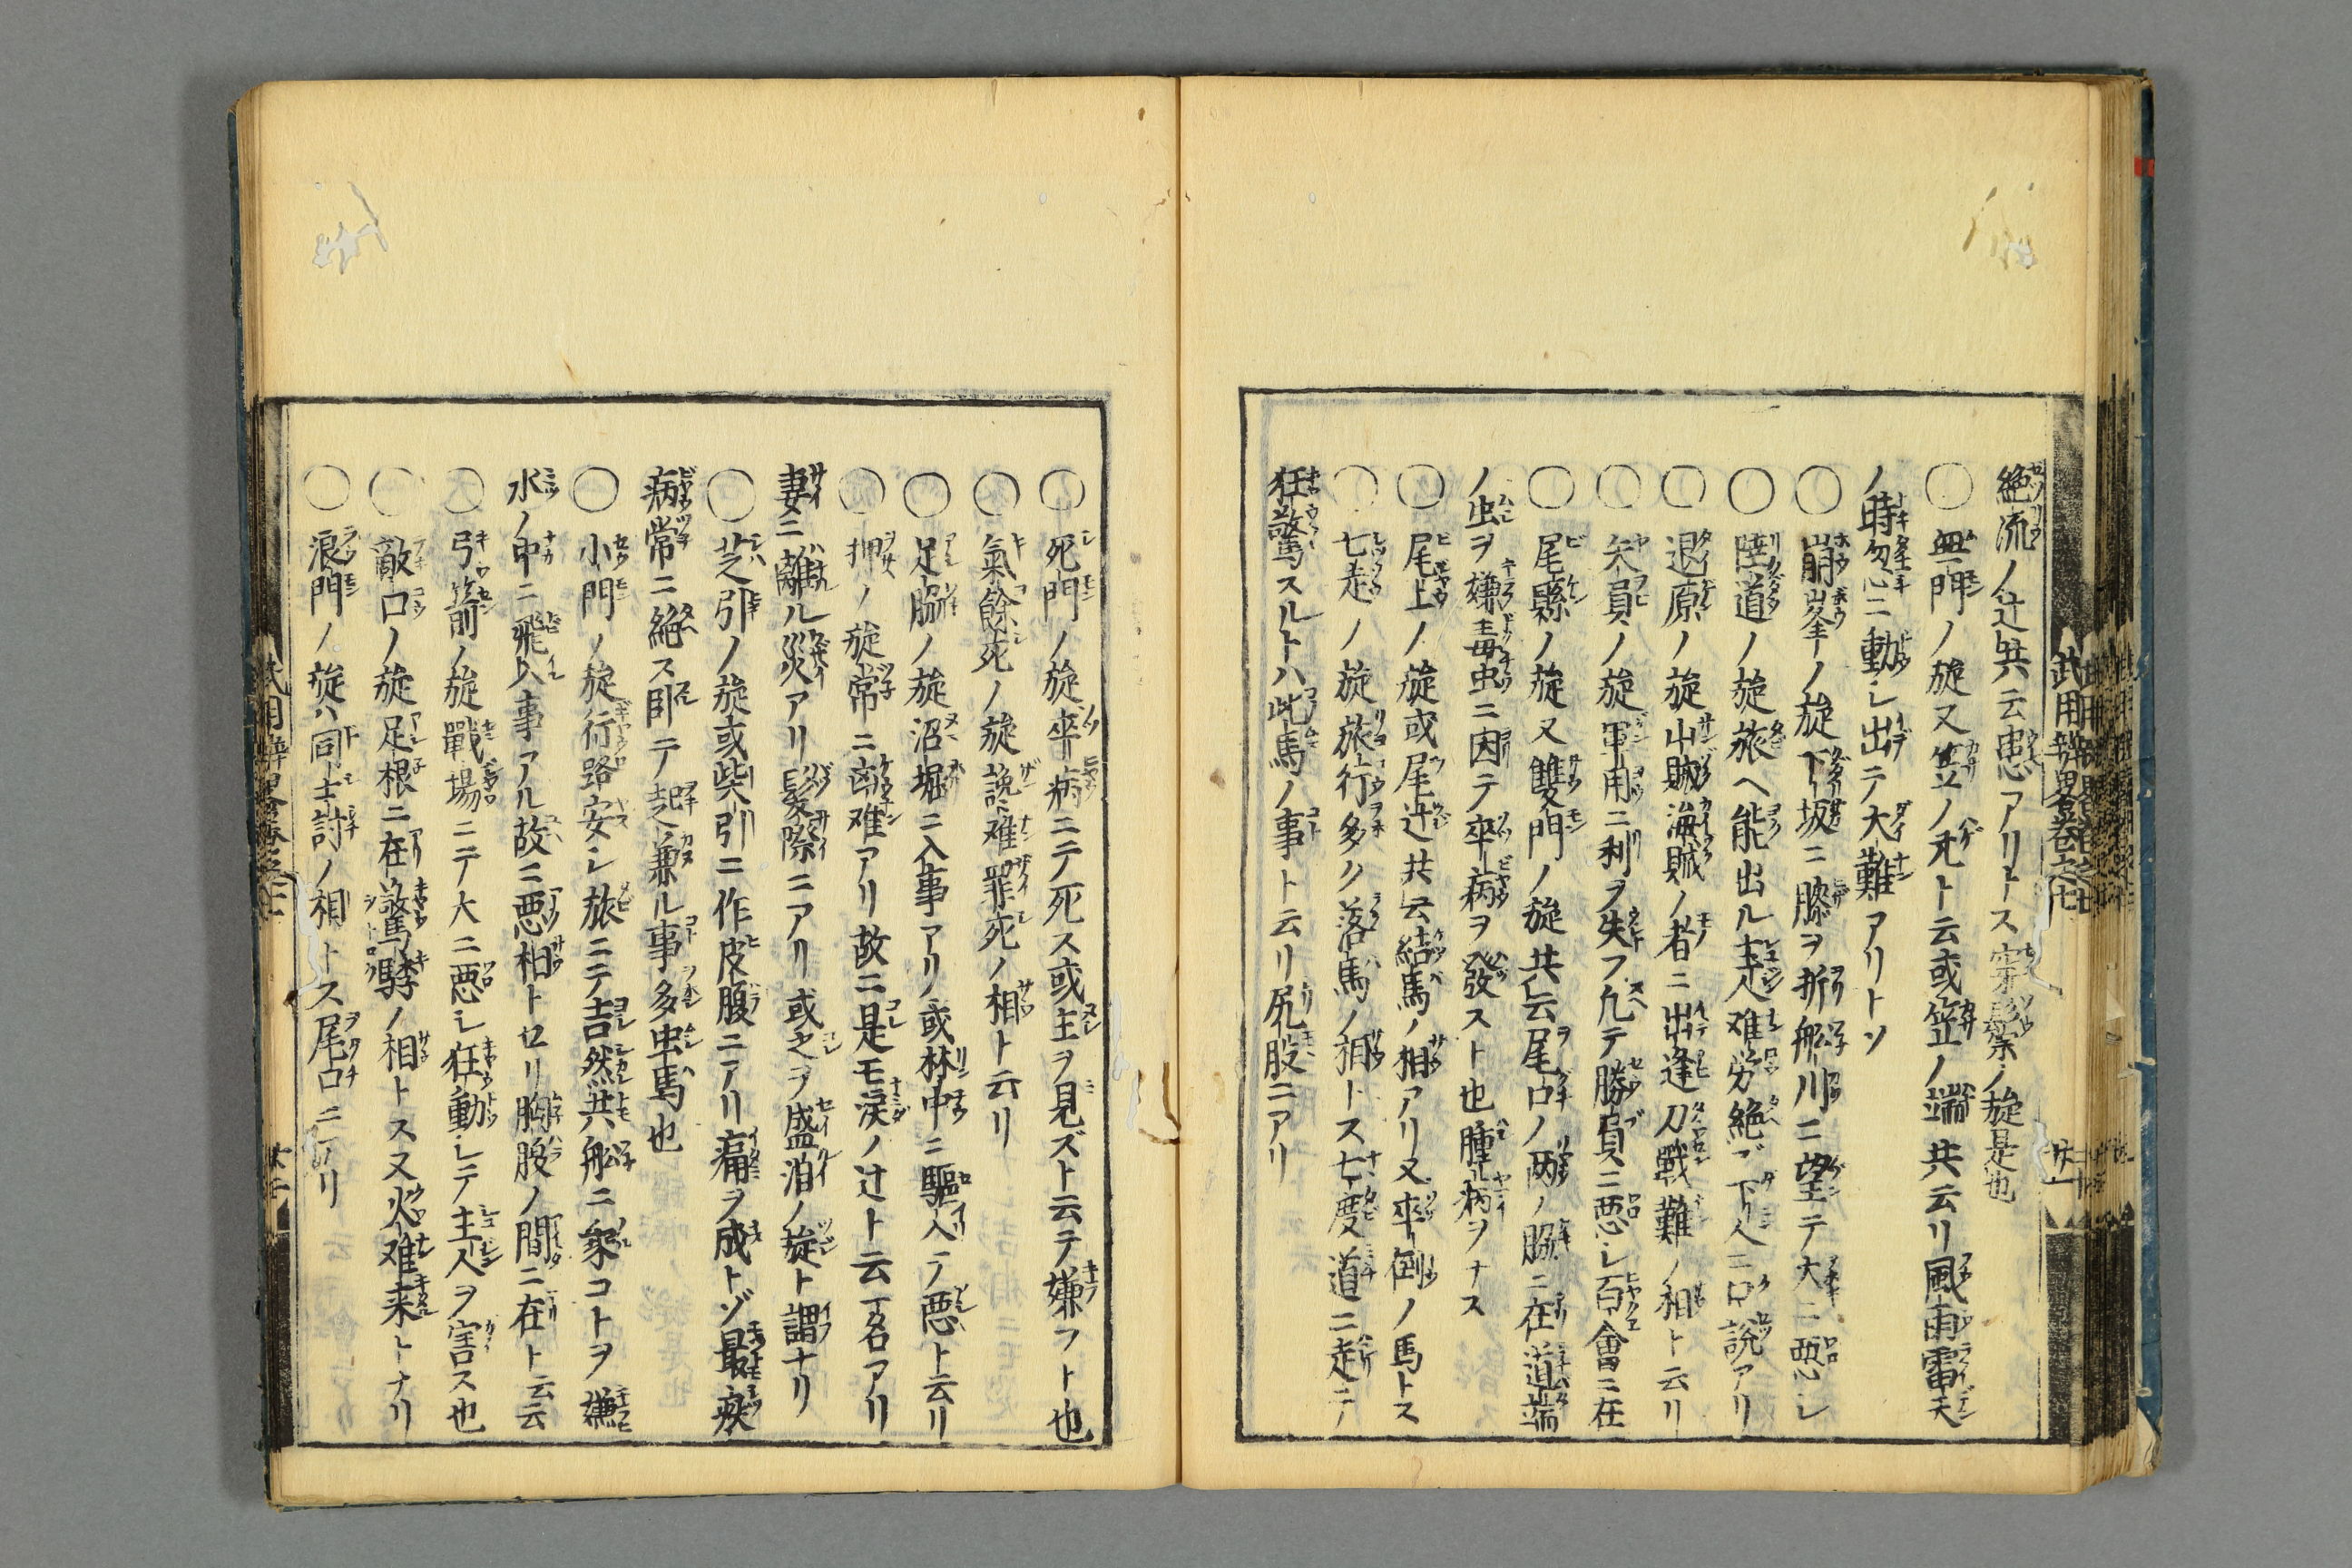 絶流ノ辻共云患アリトス穿禦ノ旋是也
〇無門ノ旋又笠ノ禿ト云或笠ノ端共云リ風雨雷天
ノ時忽ニ動シ出テ大難アリトソ
〇崩峯ノ旋下坂ニ膝ヲ折船川ニ望テ大ニ悪シ
〇陸道ノ旋旅ヘ能出ル主人难労絶ズ下人ニ口説アリ
〇退原ノ旋山賊海賊ノ者ニ出逢刀戦難ノ相ト云リ
〇矢負ノ旋軍用ニ利ヲ失フ凢テ勝負ニ悪シ百會ニ在
〇尾縣ノ旋又雙門ノ旋共云尾口ノ两ノ脇ニ在道端
ノ虫ヲ嫌毒虫ニ因テ卒病ヲ發スト也腫病ヲナス
〇尾上ノ旋或尾辻共云結馬ノ相アリ又卒倒ノ馬トス
〇七走ノ旋旅行多ク落馬ノ相トス七度道ニ走テ
狂驚スルトハ此馬ノ事ト云リ尻股ニアリ
武用辨畧巻之七
〇死門ノ旋卒病ニテ死ス或主ヲ見ズト云テ嫌フト也
〇氣餘死ノ旋説难罪死ノ相ト云リ
〇足脇ノ旋沼堀ニ入事アリ或林中ニ驅入テ悪ト云リ
〇押ノ旋常ニ难アリ故ニ是モ涙ノ辻ト云一名アリ
妻ニ離ル災アリ髮際ニアリ或之ヲ盛泊ノ旋ト謂ナリ
〇芝引ノ旋或柴引ニ作皮腹ニアリ痛ヲ成トゾ最疾
病常ニ絶ス卧テ起兼ル事多虫馬也
〇小門ノ旋行路安シ旅ニテ吉然共船ニ乗コトヲ嫌
水ノ中ニ飛入事アル故ニ悪相トセリ胸腹ノ間ニ在ト云云
〇弓箭ノ旋戰場ニテ大ニ悪シ狂動シテ主人ヲ害ス也
〇敵口ノ旋足根ニ在驚騎ノ相トス又火难来トナリ
〇浪門ノ旋ハ同士討ノ相トス尾口ニ有リ